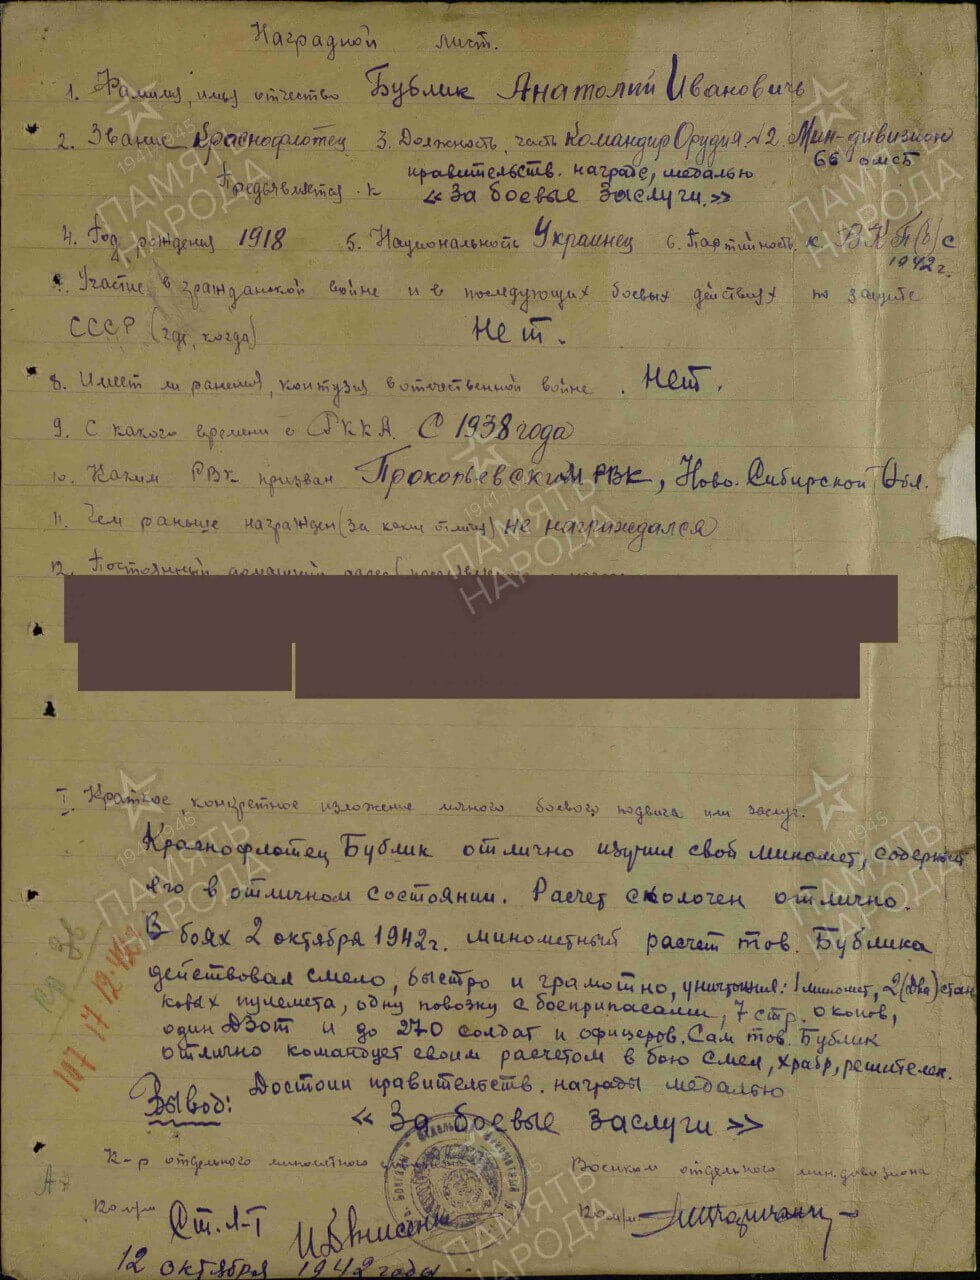 Наградной лист.
1. Фамилия, имя отчество Бублик Анатолий Ивановичь
2. Звание Краснофлотец 3. Должность, часть Командир Орудия №2 Мин-дивизион
66 омсб
Предъявляется к правительств. награде, медалью
«За боевые Заслуги.»
4. Год рождения 1918 5. Национальность Украинец 6. Партийность к ВКП(б) с
1942г.
7. Участие в гражданской войне и в последующих боевых действиях по защите
СССР (где, когда) Нет.
8. Имеет ли ранения, контузия в отечественной войне. Нет.
9. С какого времени в РККА. С 1938 года
10. Каким РВК призван Прокопьевским РВК, Ново-Сибирской Обл.
11. Чем раньше награжден (за какие отличия) не награждался
12. Постоянный домашний адрес
I. Краткое, конкретное изложение личного боевого подвига или заслуг.
Краснофлотец Бублик отлично изучил свой миномет, содержит
его в отличном состоянии. Расчет сколочен отлично.
В боях 2 октября 1942г. минометный расчет тов. Бублика
действовал смело, быстро и грамотно, уничтожил: 1 миномет, 2 (два) стан
ковых пулемета, одну повозку с боеприпасами, 7 стр. окопов,
один ДЗОТ и до 270 солдат и офицеров. Сам тов. Бублик
отлично командует своим расчетом в бою смел, храбр, решителен.
Вывод: Достоин правительств. награды медалью
«За боевые заслуги»
К-р отдельного минометного Военком отдельного мин.дивизиона
Ст. Л-Т
12 октября 1942 года.
1941-1945
ПАМЯТЬ
НАРОДА